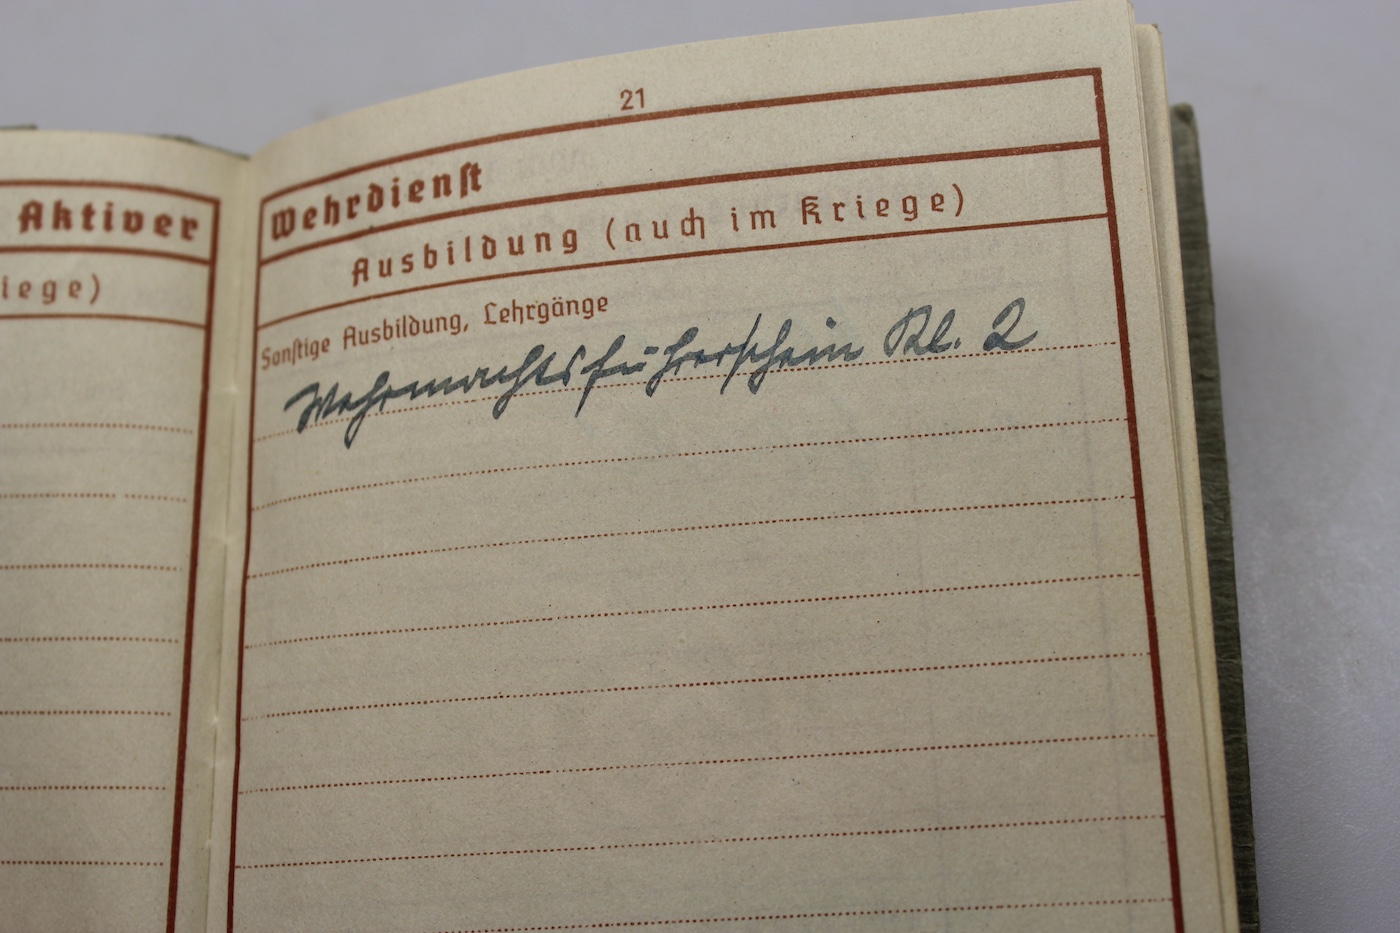 Aktiver
iege)
21
Wehrdienst
Ausbildung (auch im Kriege)
Sonstige Ausbildung, Lehrgänge
Wehrmachtsführerschein Kl. 2